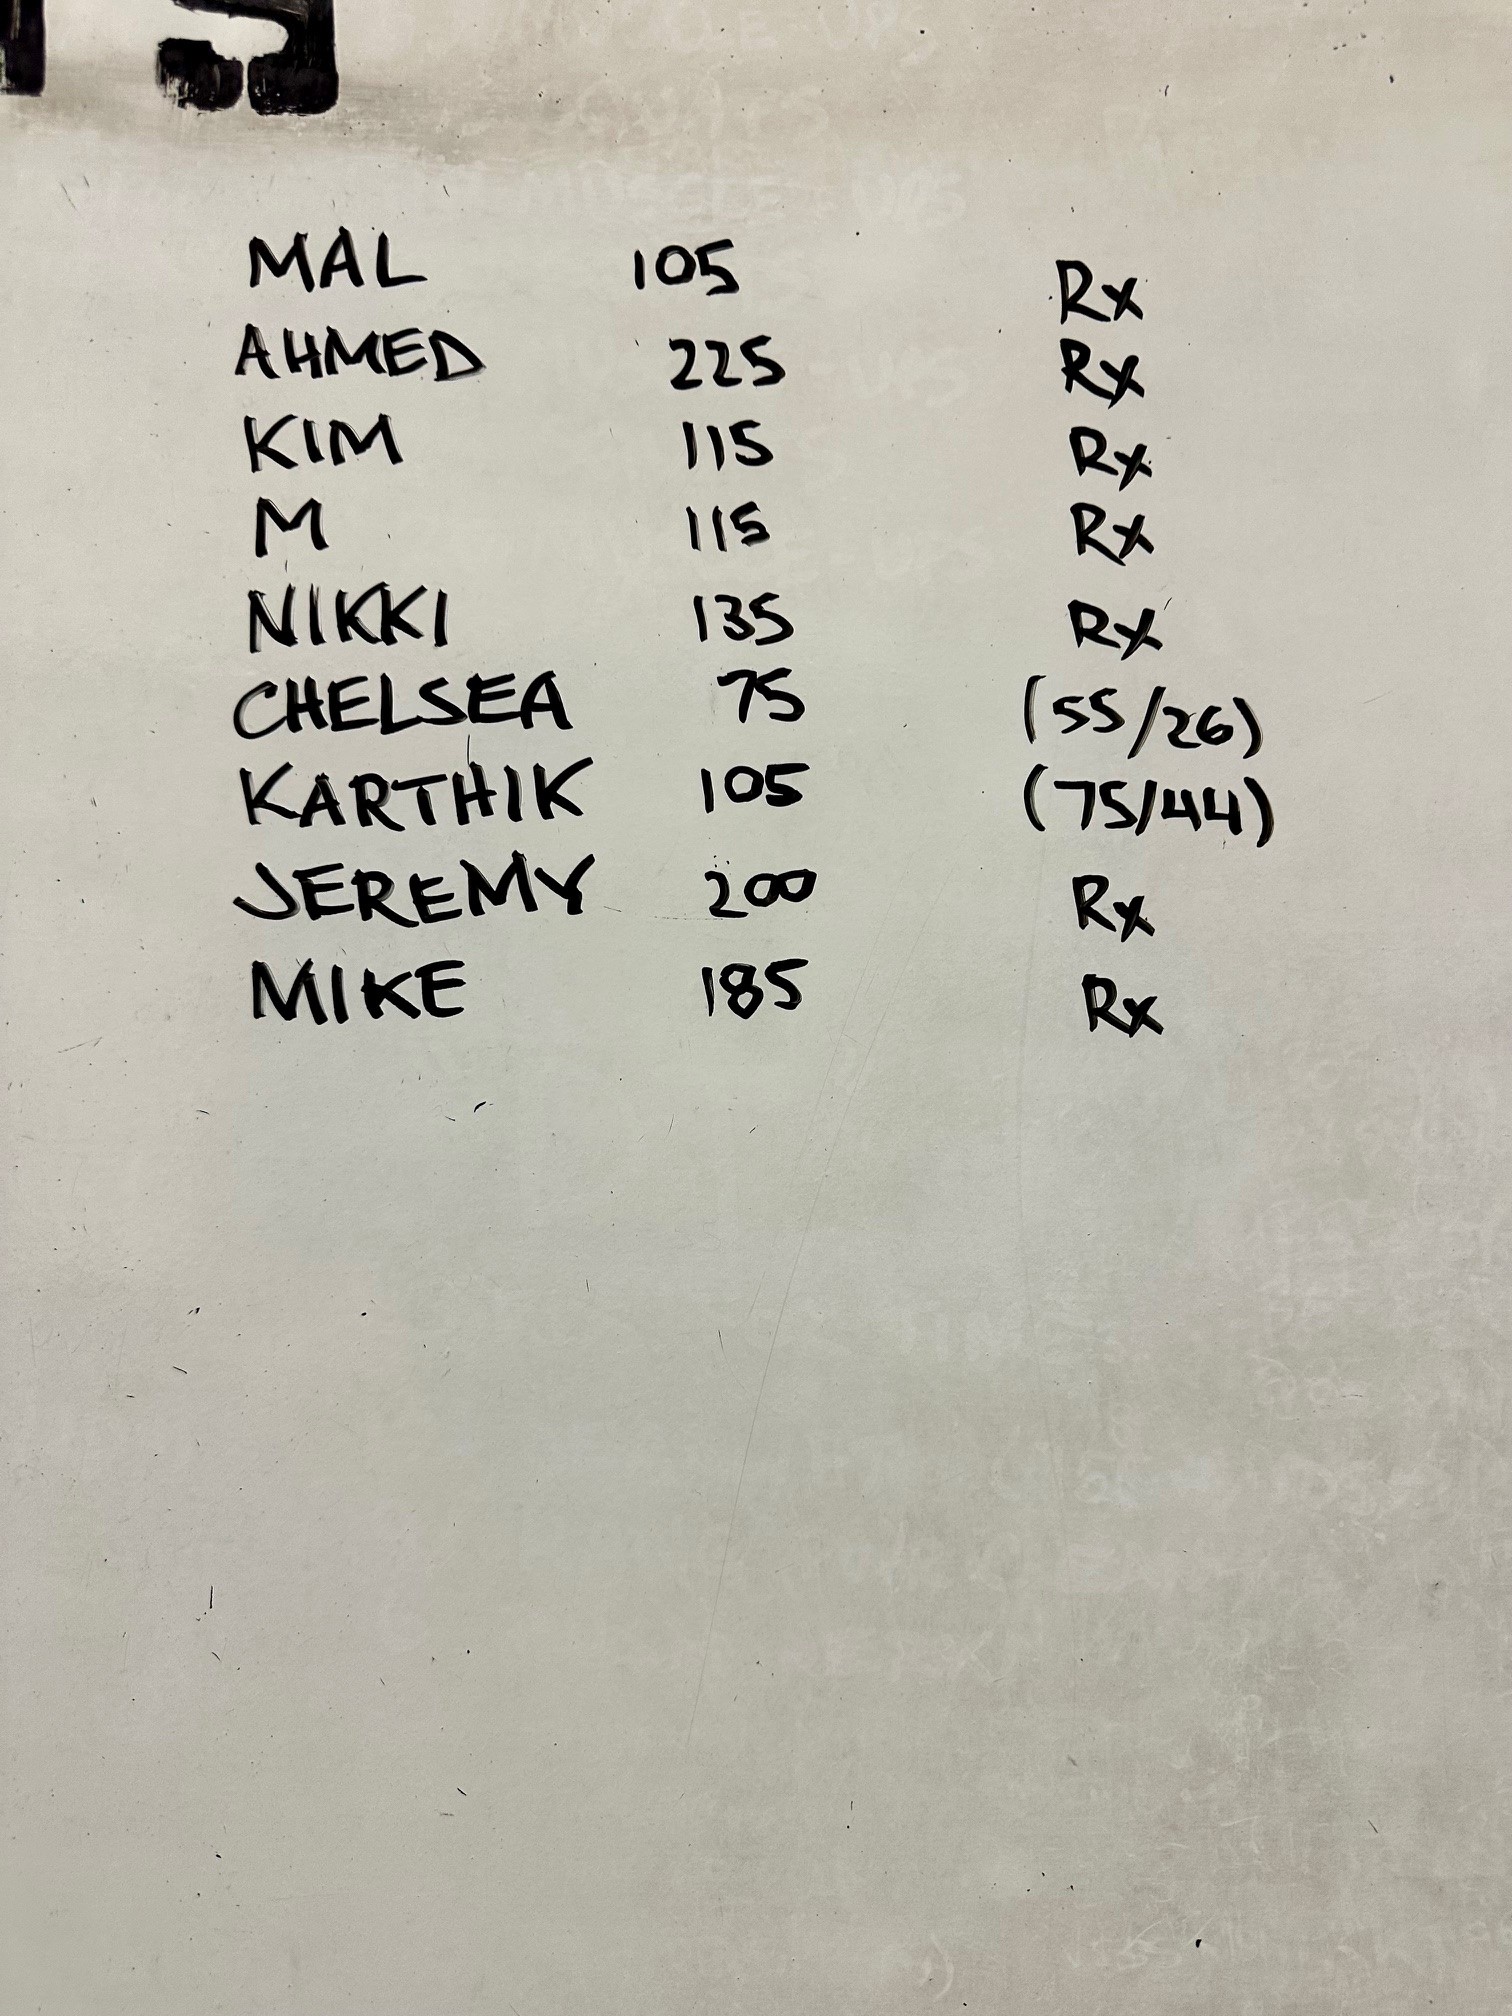 MAL 105 Rx
AHMED 225 Rx
KIM 115 Rx
M 115 Rx
NIKKI 135 Rx
CHELSEA 75 (55/26)
KARTHIK 105 (75/44)
JEREMY 200 Rx
MIKE 185 Rx